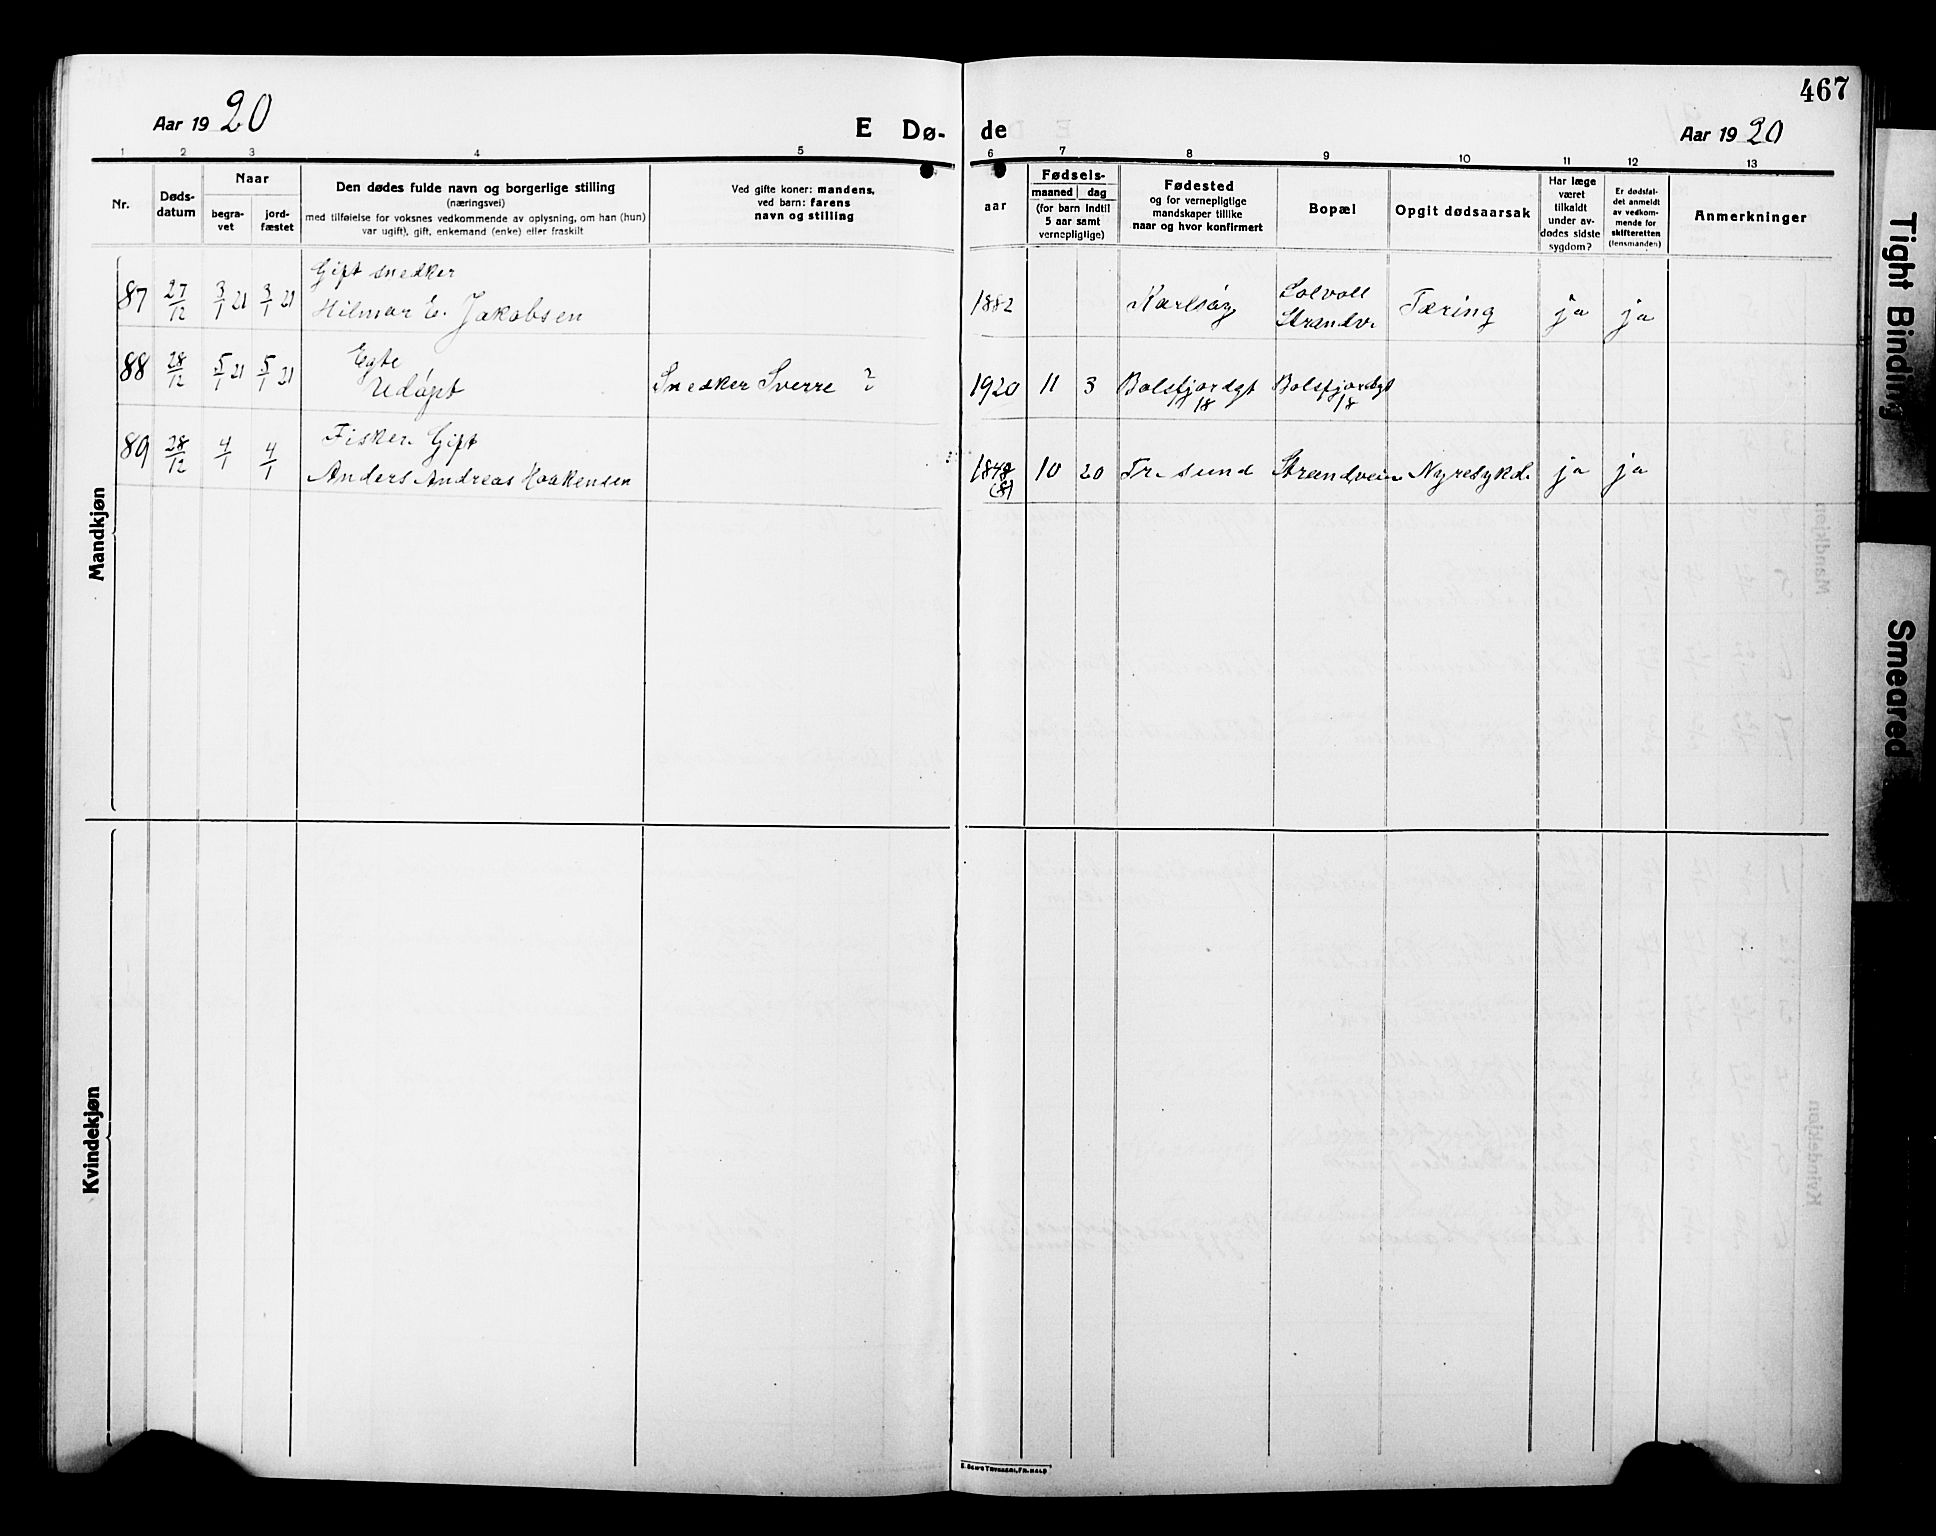 467
Aar 1920
E Dø-
de
Aar 1920
1 2 3 4 5 6 7 8 9 10 11 12 13
Nr.
Døds-
datum
Naar
begra-
vet
jord-
fæstet
Den dødes fulde navn og borgerlige stilling
(næringsvei)
med tilføielse for voksnes vedkommende av oplysning, om han (hun)
var ugift), gift, enkemand (enke) eller fraskilt
Ved gifte koner: mandens,
ved barn: farens
navn og stilling
aar
Fødsels-
maaned dag
(for barn indtil
5 aar samt
vernepligtige)
Fødested
og for vernepligtige
mandskaper tillike
naar og hvor konfirmert
Bopæl
Opgit dødsaarsak
Har læge
været
tilkaldt
under av-
dødes sidste
sygdom?
Er dødsfal-
det anmeldt
av vedkom-
mende for
skifteretten
(lensmanden)
Anmerkninger
Mandkjøn
87 27/12 3/1 21 3/1 21
Gift snedker
Hilmar E. Jakobsen
1882
Karlsøy
Solvoll
Strandv.
Tæring
ja
ja
88 28/12 5/1 21 5/1 21
Egte
Udøpt
Snedker Sverre ?
1920 11 3
Balsfjordgt
18
Balsfjordgt
18
89 28/12 4/1 4/1
Fisker. Gift
Anders Andreas Haakensen
1848
(8)
10 20
Tr. sund
Strandveien
Nyresykd.
ja
ja
Kvindekjøn
Tight Binding
Smeared